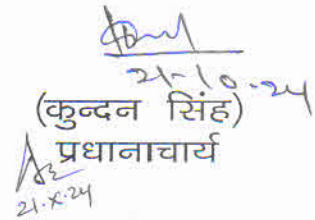 21-10-24
(कुन्दन सिंह)
प्रधानाचार्य
21.x.24